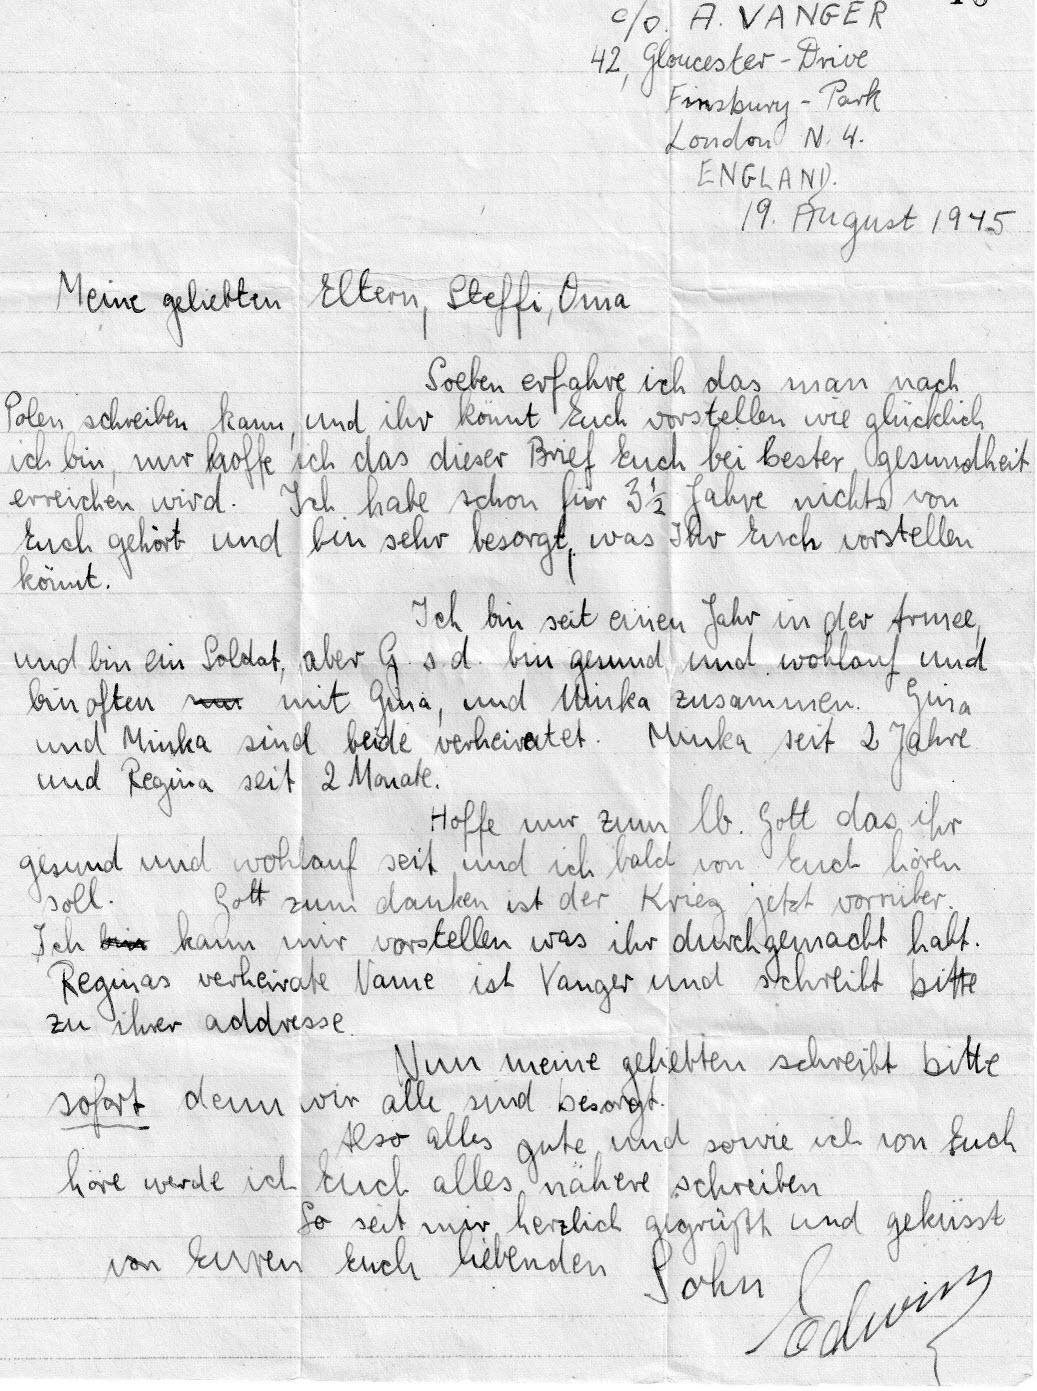 c/o. A. VANGER
42, Gloucester-Drive
Finsbury-Park
London N. 4.
ENGLAND.
19. August 1945
Meine geliebten Eltern, Steffi, Oma
Soeben erfahre ich das man nach
Polen schreiben kann, und ihr könnt Euch vorstellen wie glücklich
ich bin, nur hoffe ich das dieser Brief Euch bei bester gesundheit
erreichen wird. Ich habe schon für 3½ Jahre nichts von
Euch gehört und bin sehr besorgt, was Ihr Euch vorstellen
könnt.
Ich bin seit einen Jahr in der Armee,
und bin ein Soldat, aber G. s. d. bin gesund und wohlauf und
bin often mit Gina, und Minka zusammen. Gina
und Minka sind beide verheiratet. Minka seit 2 Jahre
und Regina seit 2 Monate.
Hoffe nur zum lb. Gott das ihr
gesund und wohlauf seit und ich bald von Euch hören
soll. Gott zum danken ist der Krieg jetzt vorrüber.
Ich bin kann mir vorstellen was ihr durchgemacht habt.
Reginas verheirate Name ist Vanger und schreibt bitte
zu ihrer addresse.
Nun meine geliebten schreibt bitte
sofort denn wir alle sind besorgt.
Also alles gute und sowie ich von Euch
höre werde ich Euch alles nähere schreiben
So seit mir herzlich gegrüßt und geküsst
von Euren Euch liebenden Sohn
Edwin